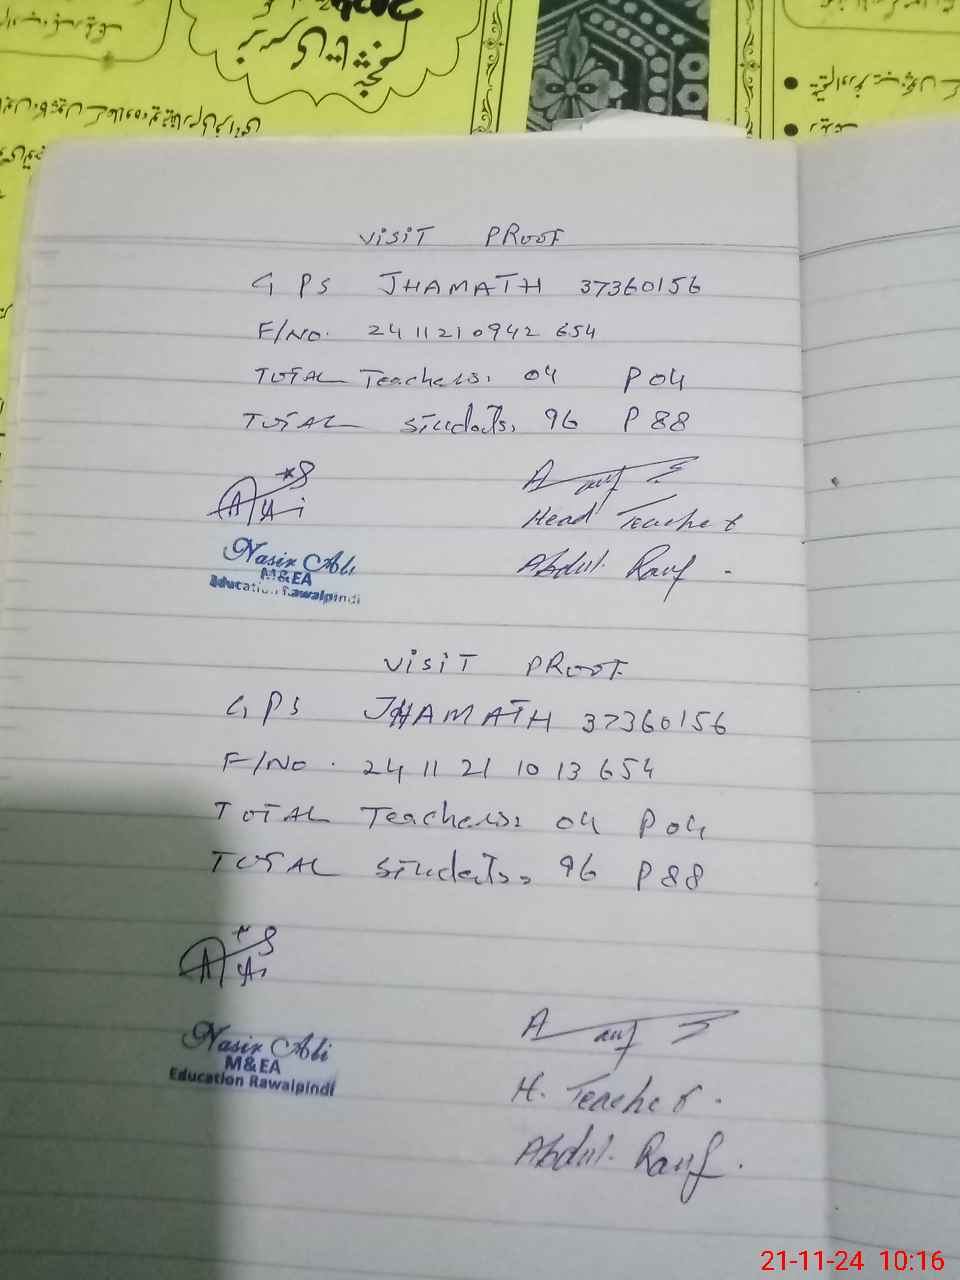 2024
VISIT PROOF
G P S JHAMATH 37360156
F/NO. 24 11 21 0942 654
TOTAL Teachers. 04 P 04
TOTAL Students, 96 P 88
Head Teacher
Abdul Rauf
Nasir Ali
M&EA
Education Rawalpindi
VISIT PROOF
G P S JHAMATH 37360156
F/NO. 24 11 21 10 13 654
TOTAL Teachers: 04 P 04
TOTAL Students, 96 P 88
Nasir Ali
M&EA
Education Rawalpindi
H. Teacher.
Abdul Rauf.
21-11-24 10:16